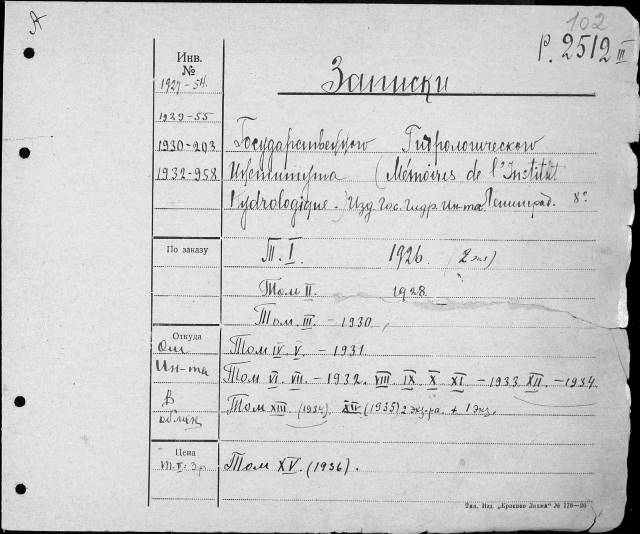 102
Р. 2512 III
Инв.
№
Записки
1927-54.
1929-55
1930-203
Государственного Гидрологического
1932-958
Института (Mémoires de l'Institut
Hydrologique.) Изд. Гос. Гидр. Ин-та. Ленинград. 8°
По заказу
Т. I. 1926. (2 экз)
Том II. 1928.
Том. III. - 1930.
Откуда
От
Том IV. V. - 1931.
Ин-та
Том VI. VII. - 1932. VIII IX X XI. - 1933. XII. - 1934.
В
Том XIII. (1934). XIV (1935) 2 экз-ра. + 1 экз.
Цена
т. II. 3р.
Том XV. (1936).
Тип. Изд. „Красное Знамя" № 170—26